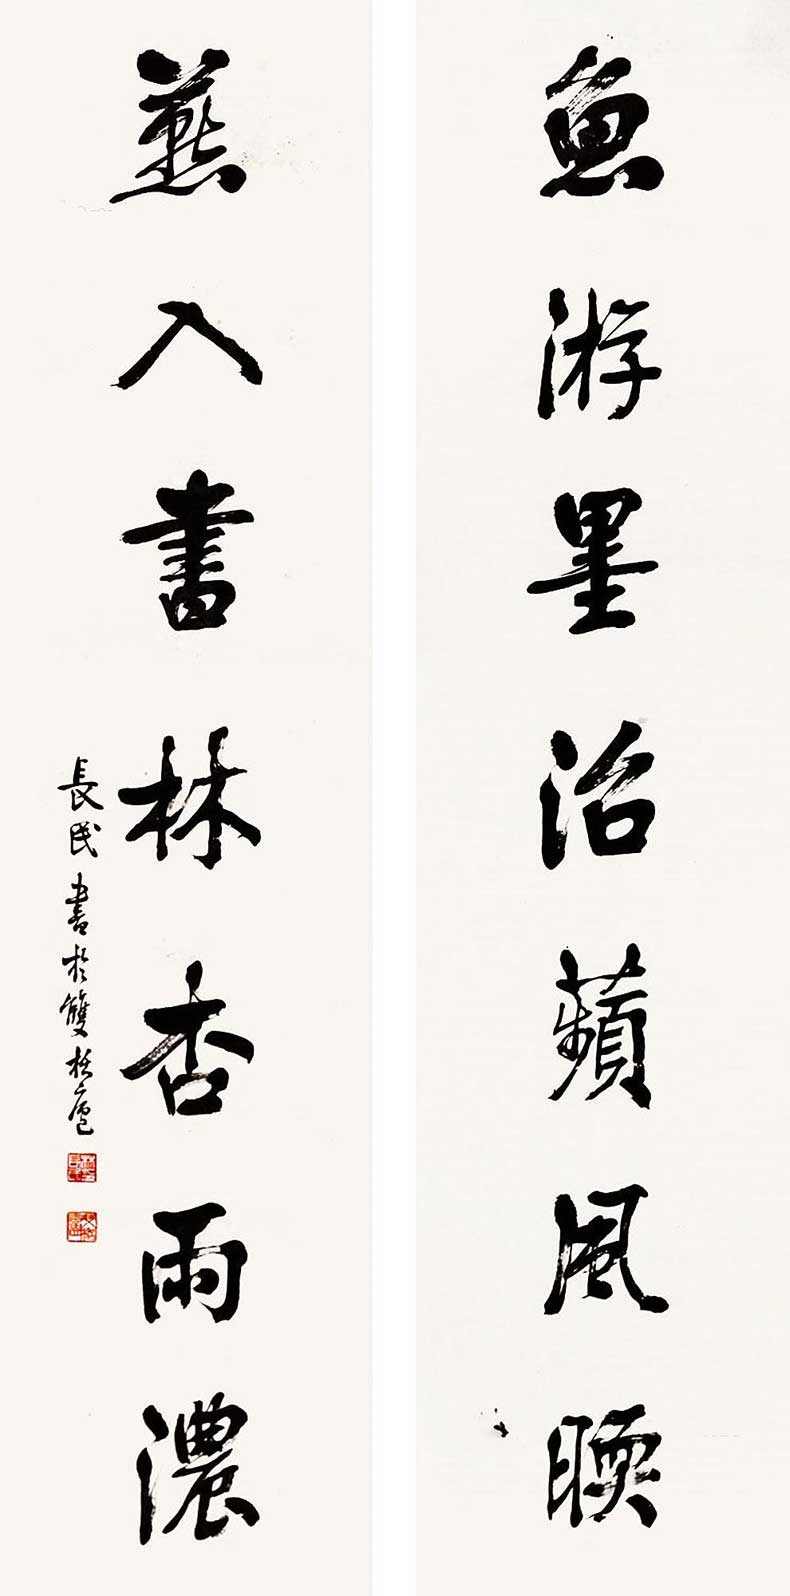 魚游墨沼蘋風暖
燕入書林杏雨濃
長民書於雙栝廬